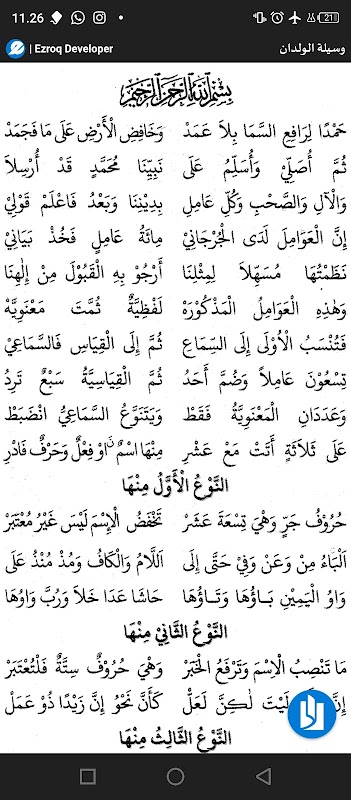 11.26
21
| Ezroq Developer
وسيلة الولدان
بِسْمِ اللهِ الرَّحْمٰنِ الرَّحِيْمِ
حَمْدًا لِرَافِعِ السَّمَا بِلاَ عَمَدْ وَخَافِضِ الْأَرْضِ عَلَى مَا فَجَمَدْ
ثُمَّ أُصَلِّيْ وَأُسَلِّمُ عَلَى نَبِيِّنَا مُحَمَّدٍ قَدْ أُرْسِلاَ
وَالْآلِ وَالصَّحْبِ وَكُلِّ عَامِلِ بِدِيْنِنَا وَبَعْدُ فَاعْلَمْ قَوْلِيْ
إِنَّ الْعَوَامِلَ لَدَى الْجُرْجَانِيْ مِائَةُ عَامِلٍ فَخُذْ بَيَانِيْ
نَظَمْتُهَا مُسَهِّلاً لِمِثْلِنَا أَرْجُوْ بِهِ الْقَبُوْلَ مِنْ إِلٰهِنَا
وَهٰذِهِ الْعَوَامِلُ الْمَذْكُوْرَهْ لَفْظِيَّةٌ ثُمَّتَ مَعْنَوِيَّهْ
فَتُنْسَبُ الْأُوْلَى إِلَى السِّمَاعِ ثُمَّ إِلَى الْقِيَاسِ فَالسِّمَاعِيْ
تِسْعُوْنَ عَامِلاً وَضُمَّ أَحَدُ ثُمَّ الْقِيَاسِيَّةُ سَبْعٌ تَرِدُ
وَعَدَدَانِ الْمَعْنَوِيَّةُ فَقَطْ وَيَتَنَوَّعُ السَّمَاعِيُّ انْضَبَطْ
عَلَى ثَلاَثَةٍ أَتَتْ مَعْ عَشْرِ مِنْهَا اسْمٌ اوْ فِعْلٌ وَحَرْفٌ فَادْرِ
النَّوْعُ الْأَوَّلُ مِنْهَا
حُرُوْفُ جَرٍّ وَهْيَ تِسْعَةَ عَشَرْ تَخْفَضُ الْإِسْمَ لَيْسَ غَيْرُ مُعْتَبَرْ
اَلْبَاءُ مِنْ وَعَنْ وَفِيْ حَتَّى إِلَى اَللاَّمُ وَالْكَافُ وَمُذْ مُنْذُ عَلَى
وَاوُ الْيَمِيْنِ بَاؤُهَا وَتَاؤُهَا حَاشَا عَدَا خَلاَ وَرُبَّ وَاوُهَا
النَّوْعُ الثَّانِيْ مِنْهَا
مَا تَنْصِبُ الْاِسْمَ وَتَرْفَعُ الْخَبَرْ وَهِيَ حُرُوْفٌ سِتَّةٌ فَلْتُعْتَبَرْ
إِنَّ لَيْتَ لٰكِنَّ لَعَلَّ كَأَنَّ نَحْوُ إِنَّ زَيْدًا ذُوْ عَمَلْ
النَّوْعُ الثَّالِثُ مِنْهَا